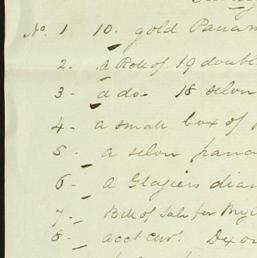 No. 1 10. gold Panam
2. a Role of 19 doubl
3 - a do - 18 selon
4 - a small box of
5 - a selon pana
6 - a Glaziers dian
7 - Bill of Sale for My
8 - acct Curt.